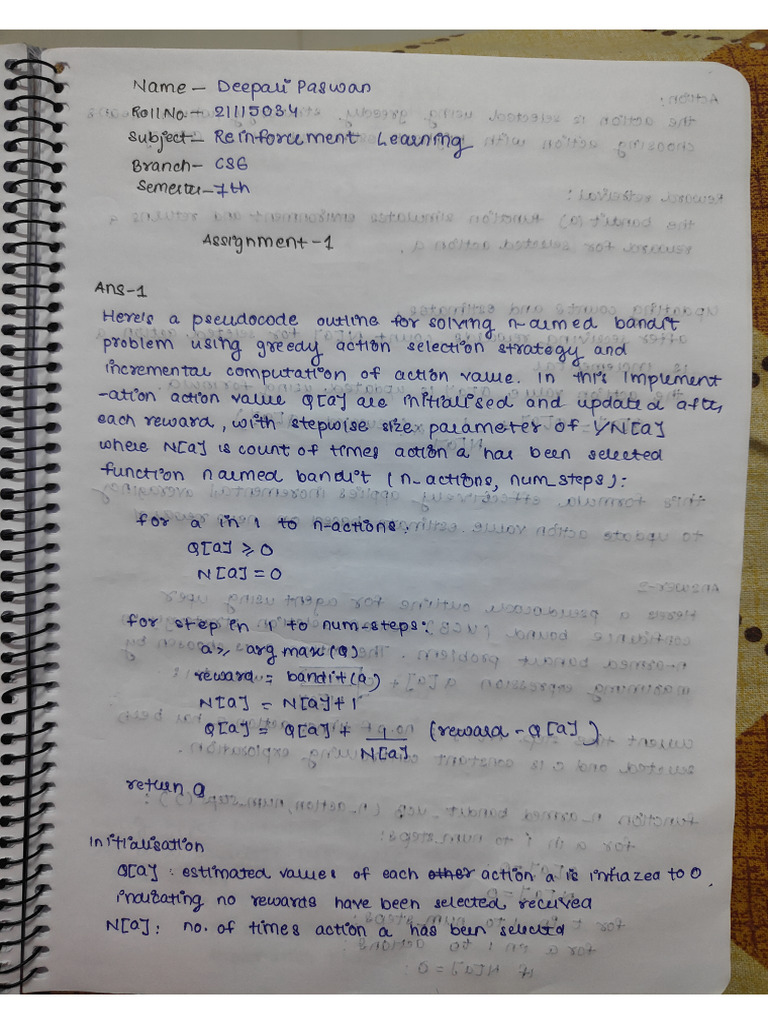 Name - Deepali Paswan
Roll No - 21115034
Subject - Reinforcement Learning
Branch - CSE
Semester - 7th
Assignment - 1
Ans-1
Here's a pseudocode outline for solving n-armed bandit
problem using greedy action selection strategy and
incremental computation of action value. In this implement
-ation action value Q[a] are initialised and updated after
each reward, with stepwise size parameter of 1/N[a]
where N[a] is count of times action a has been selected
function n armed bandit (n_actions, num_steps):
for a in 1 to n-actions:
Q[a] ≥ 0
N[a] = 0
for step in 1 to num-steps:
a ≥ arg max(Q)
reward = bandit(a)
N[a] = N[a]+1
Q[a] = Q[a] + 1/N[a] (reward - Q[a])
return Q
Initialisation
Q[a] : estimated values of each other action a is infiazed to 0
indicating no rewards have been selected received
N[a] : no. of times action a has been selected